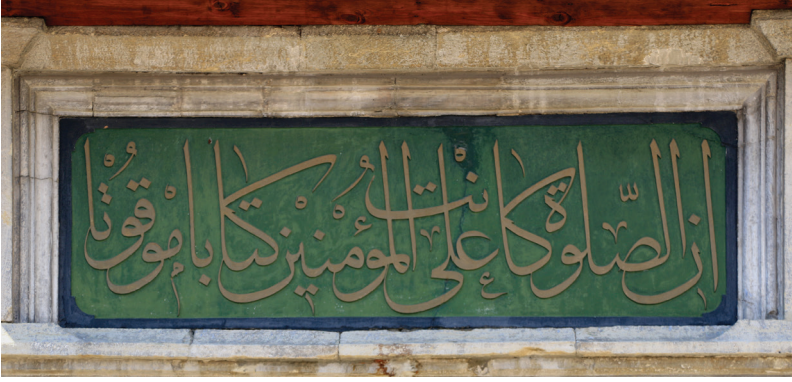 ان الصّلوة كانت على المؤمنين كتابا موقوتا